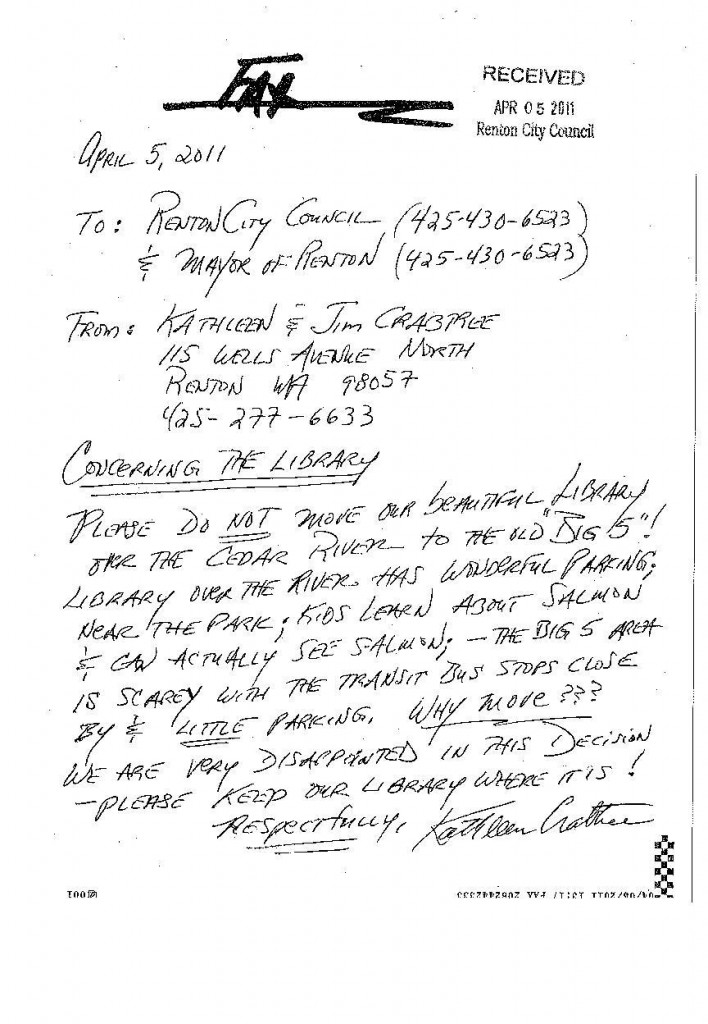 FAX
RECEIVED
APR 05 2011
Renton City Council
APRIL 5, 2011
TO: RENTON CITY COUNCIL (425-430-6523)
& MAYOR OF RENTON (425-430-6523)
FROM: KATHLEEN & JIM CRABTREE
115 WELLS AVENUE NORTH
RENTON WA 98057
425-277-6633
CONCERNING THE LIBRARY
PLEASE DO NOT MOVE OUR BEAUTIFUL LIBRARY
OVER THE CEDAR RIVER TO THE OLD "BIG 5"!
LIBRARY OVER THE RIVER HAS WONDERFUL PARKING;
NEAR THE PARK; KIDS LEARN ABOUT SALMON
& CAN ACTUALLY SEE SALMON; - THE BIG 5 AREA
IS SCAREY WITH THE TRANSIT BUS STOPS CLOSE
BY & LITTLE PARKING. WHY MOVE???
WE ARE VERY DISAPPOINTED IN THIS DECISION
- PLEASE KEEP OUR LIBRARY WHERE IT IS!
RESPECTFULLY, Kathleen Crabtree
001